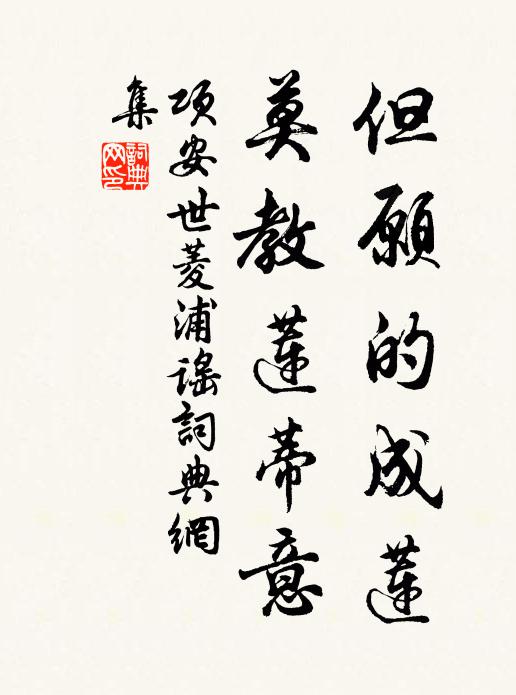 但願的成蓮
莫教蓮蒂意
項安世菱浦謠詞典網
集
詞典
网印